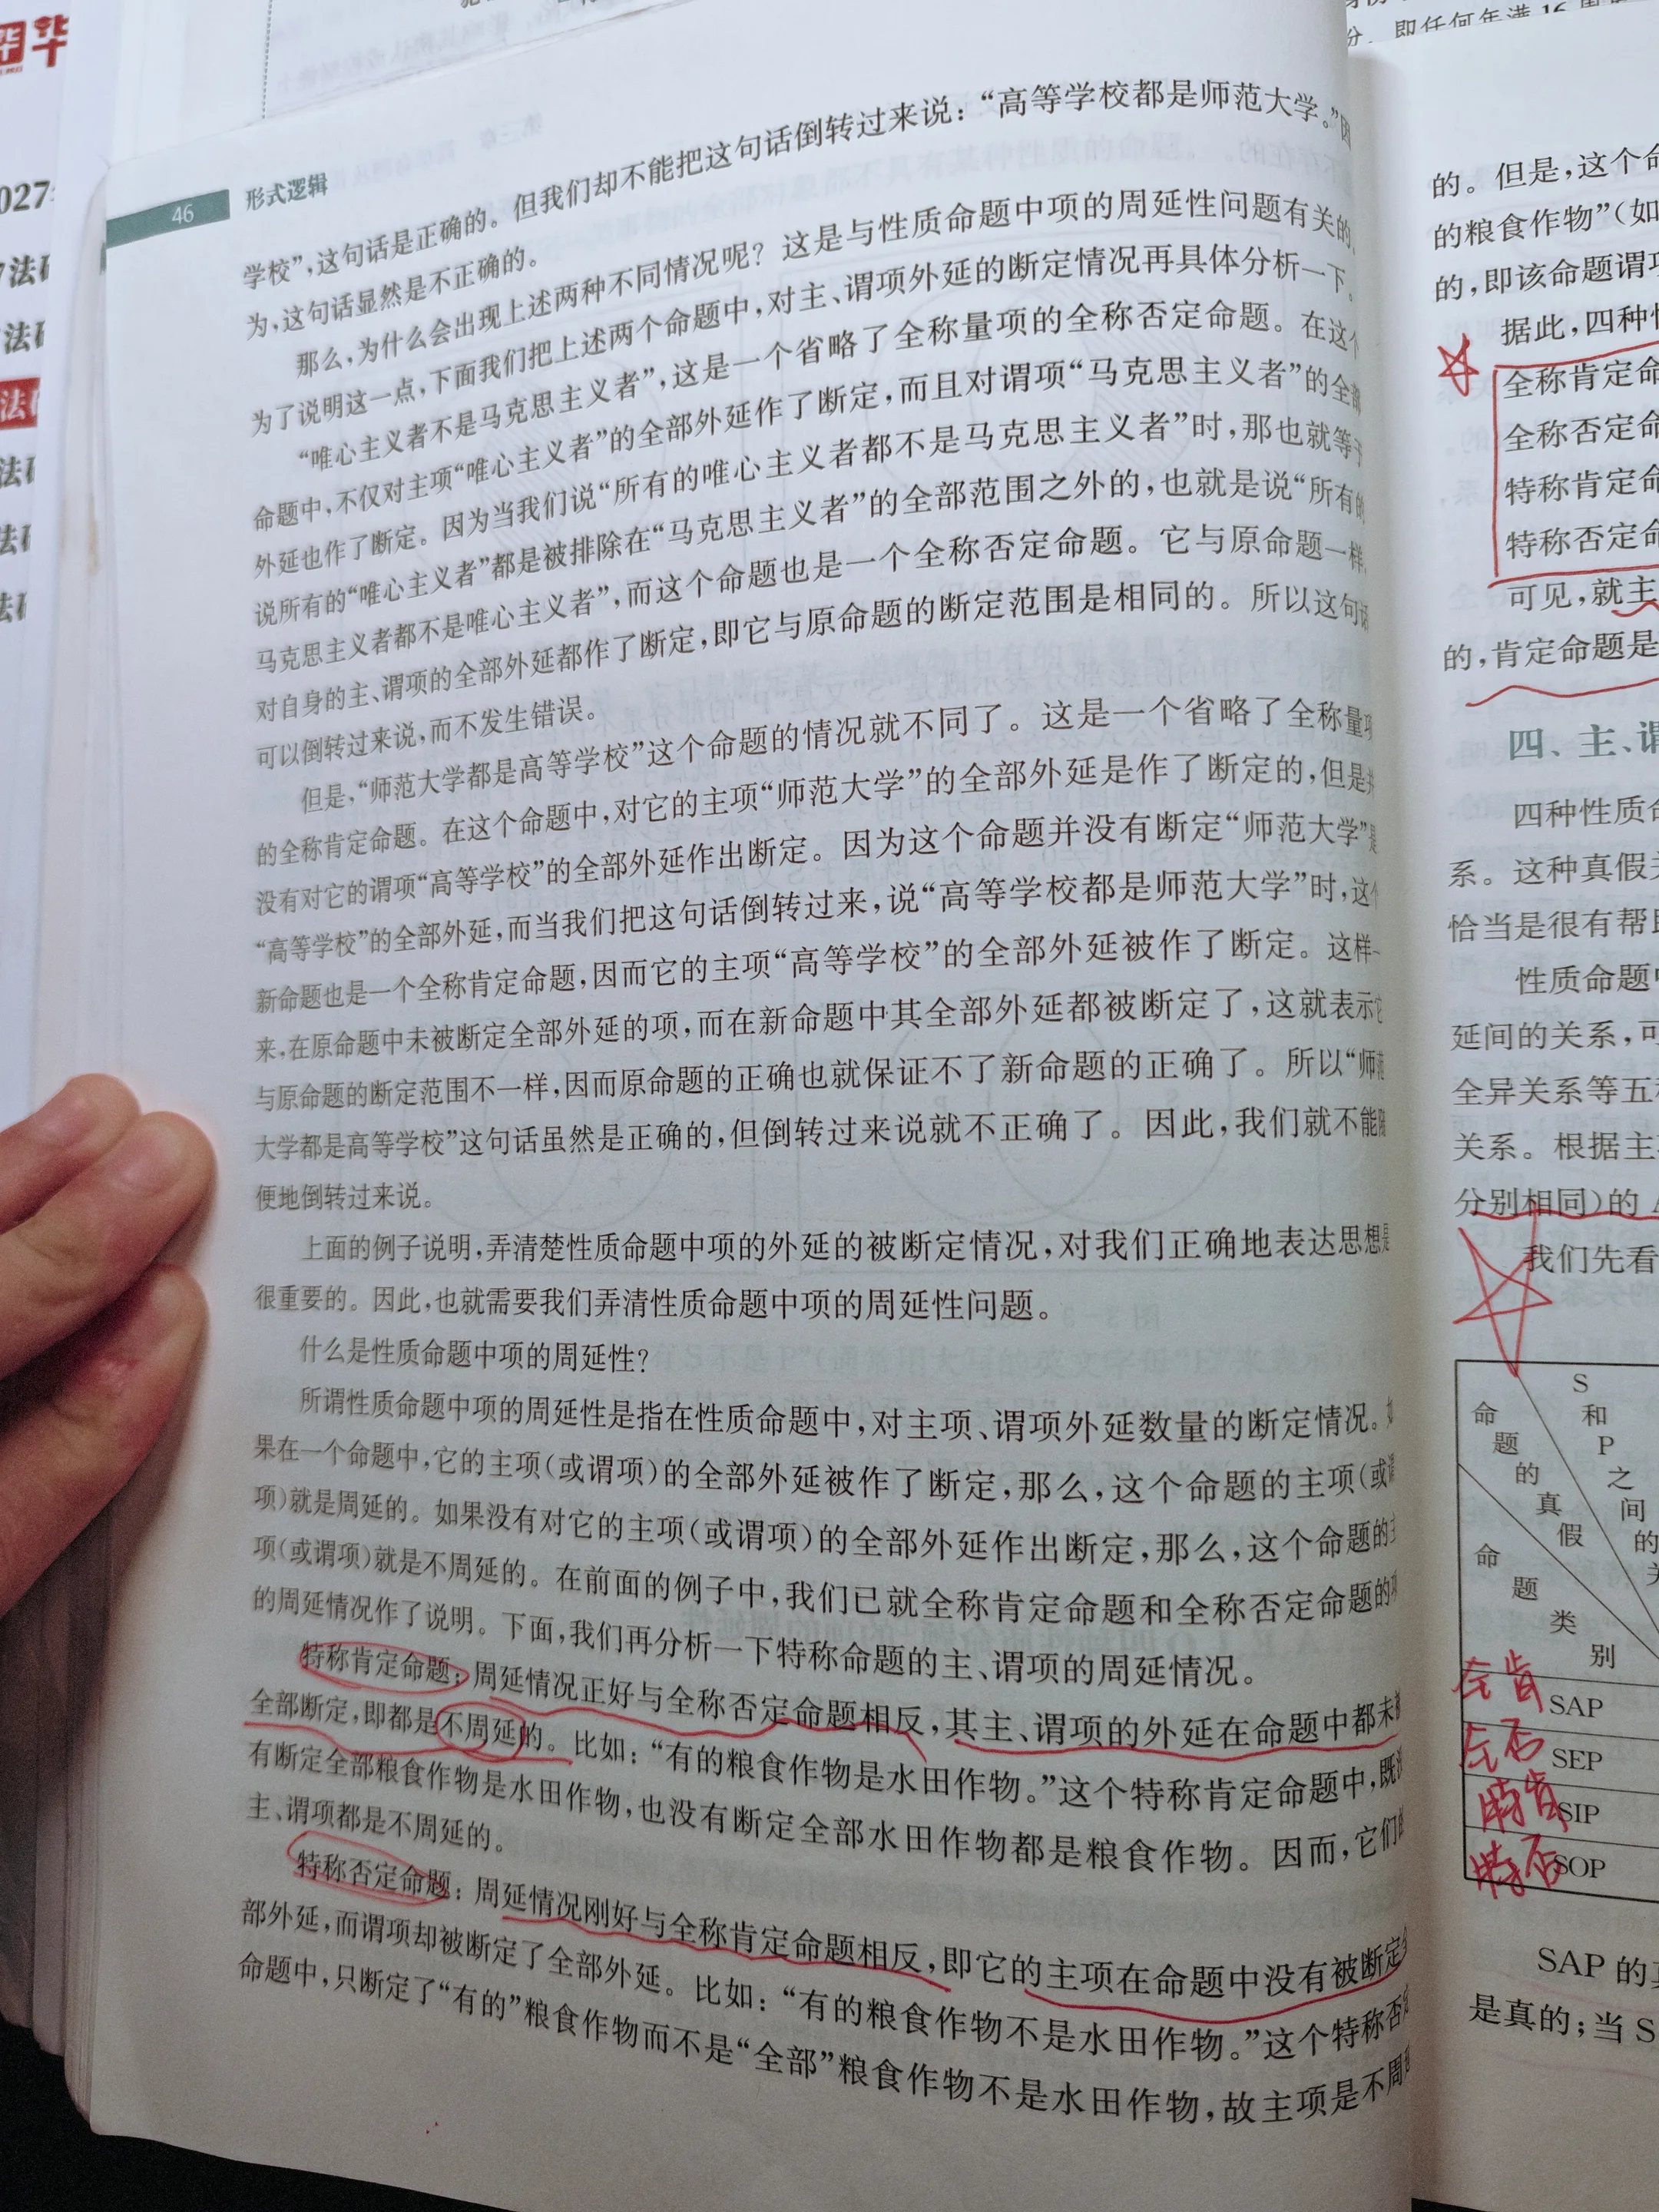 华
027
法
法
法
法
法
法
46 形式逻辑
学校”,这句话是正确的。但我们却不能把这句话倒转过来说：“高等学校都是师范大学。”因
为,这句话显然是不正确的。
那么,为什么会出现上述两种不同情况呢？这是与性质命题中项的周延性问题有关的,
为了说明这一点,下面我们把上述两个命题中,对主、谓项外延的断定情况再具体分析一下。
“唯心主义者不是马克思主义者”,这是一个省略了全称量项的全称否定命题。在这个
命题中,不仅对主项“唯心主义者”的全部外延作了断定,而且对谓项“马克思主义者”的全部
外延也作了断定。因为当我们说“所有的唯心主义者都不是马克思主义者”时,那也就等于
说所有的“唯心主义者”都是被排除在“马克思主义者”的全部范围之外的,也就是说“所有的
马克思主义者都不是唯心主义者”,而这个命题也是一个全称否定命题。它与原命题一样,
对自身的主、谓项的全部外延都作了断定,即它与原命题的断定范围是相同的。所以这句话
可以倒转过来说,而不发生错误。
但是,“师范大学都是高等学校”这个命题的情况就不同了。这是一个省略了全称量项
的全称肯定命题。在这个命题中,对它的主项“师范大学”的全部外延是作了断定的,但是并
没有对它的谓项“高等学校”的全部外延作出断定。因为这个命题并没有断定“师范大学”是
“高等学校”的全部外延,而当我们把这句话倒转过来,说“高等学校都是师范大学”时,这个
新命题也是一个全称肯定命题,因而它的主项“高等学校”的全部外延被作了断定。这样一
来,在原命题中未被断定全部外延的项,而在新命题中其全部外延都被断定了,这就表示它
与原命题的断定范围不一样,因而原命题的正确也就保证不了新命题的正确了。所以“师范
大学都是高等学校”这句话虽然是正确的,但倒转过来说就不正确了。因此,我们就不能随
便地倒转过来说。
上面的例子说明,弄清楚性质命题中项的外延的被断定情况,对我们正确地表达思想是
很重要的。因此,也就需要我们弄清性质命题中项的周延性问题。
什么是性质命题中项的周延性？
所谓性质命题中项的周延性是指在性质命题中,对主项、谓项外延数量的断定情况。如
果在一个命题中,它的主项(或谓项)的全部外延被作了断定,那么,这个命题的主项(或谓
项)就是周延的。如果没有对它的主项(或谓项)的全部外延作出断定,那么,这个命题的主
项(或谓项)就是不周延的。在前面的例子中,我们已就全称肯定命题和全称否定命题的项
的周延情况作了说明。下面,我们再分析一下特称命题的主、谓项的周延情况。
特称肯定命题：周延情况正好与全称否定命题相反,其主、谓项的外延在命题中都未被
全部断定,即都是不周延的。比如：“有的粮食作物是水田作物。”这个特称肯定命题中,既没
有断定全部粮食作物是水田作物,也没有断定全部水田作物都是粮食作物。因而,它们的
主、谓项都是不周延的。
特称否定命题：周延情况刚好与全称肯定命题相反,即它的主项在命题中没有被断定全
部外延,而谓项却被断定了全部外延。比如：“有的粮食作物不是水田作物。”这个特称否定
命题中,只断定了“有的”粮食作物而不是“全部”粮食作物不是水田作物,故主项是不周延
分，即任何年满16周
的。但是,这个命
的粮食作物”(如
的,即该命题谓项
据此,四种性
全称肯定命
全称否定命
特称肯定命
特称否定命
可见,就主
的,肯定命题是
四、主、谓
四种性质命
系。这种真假关
恰当是很有帮助
性质命题中
延间的关系,可
全异关系等五种
关系。根据主项
分别相同)的 A
我们先看
S
和
P
之
间
的
关
命
题
的
真
假
命
题
类
别
全肯 SAP
全否 SEP
特肯 SIP
特否 SOP
SAP 的真
是真的;当 S